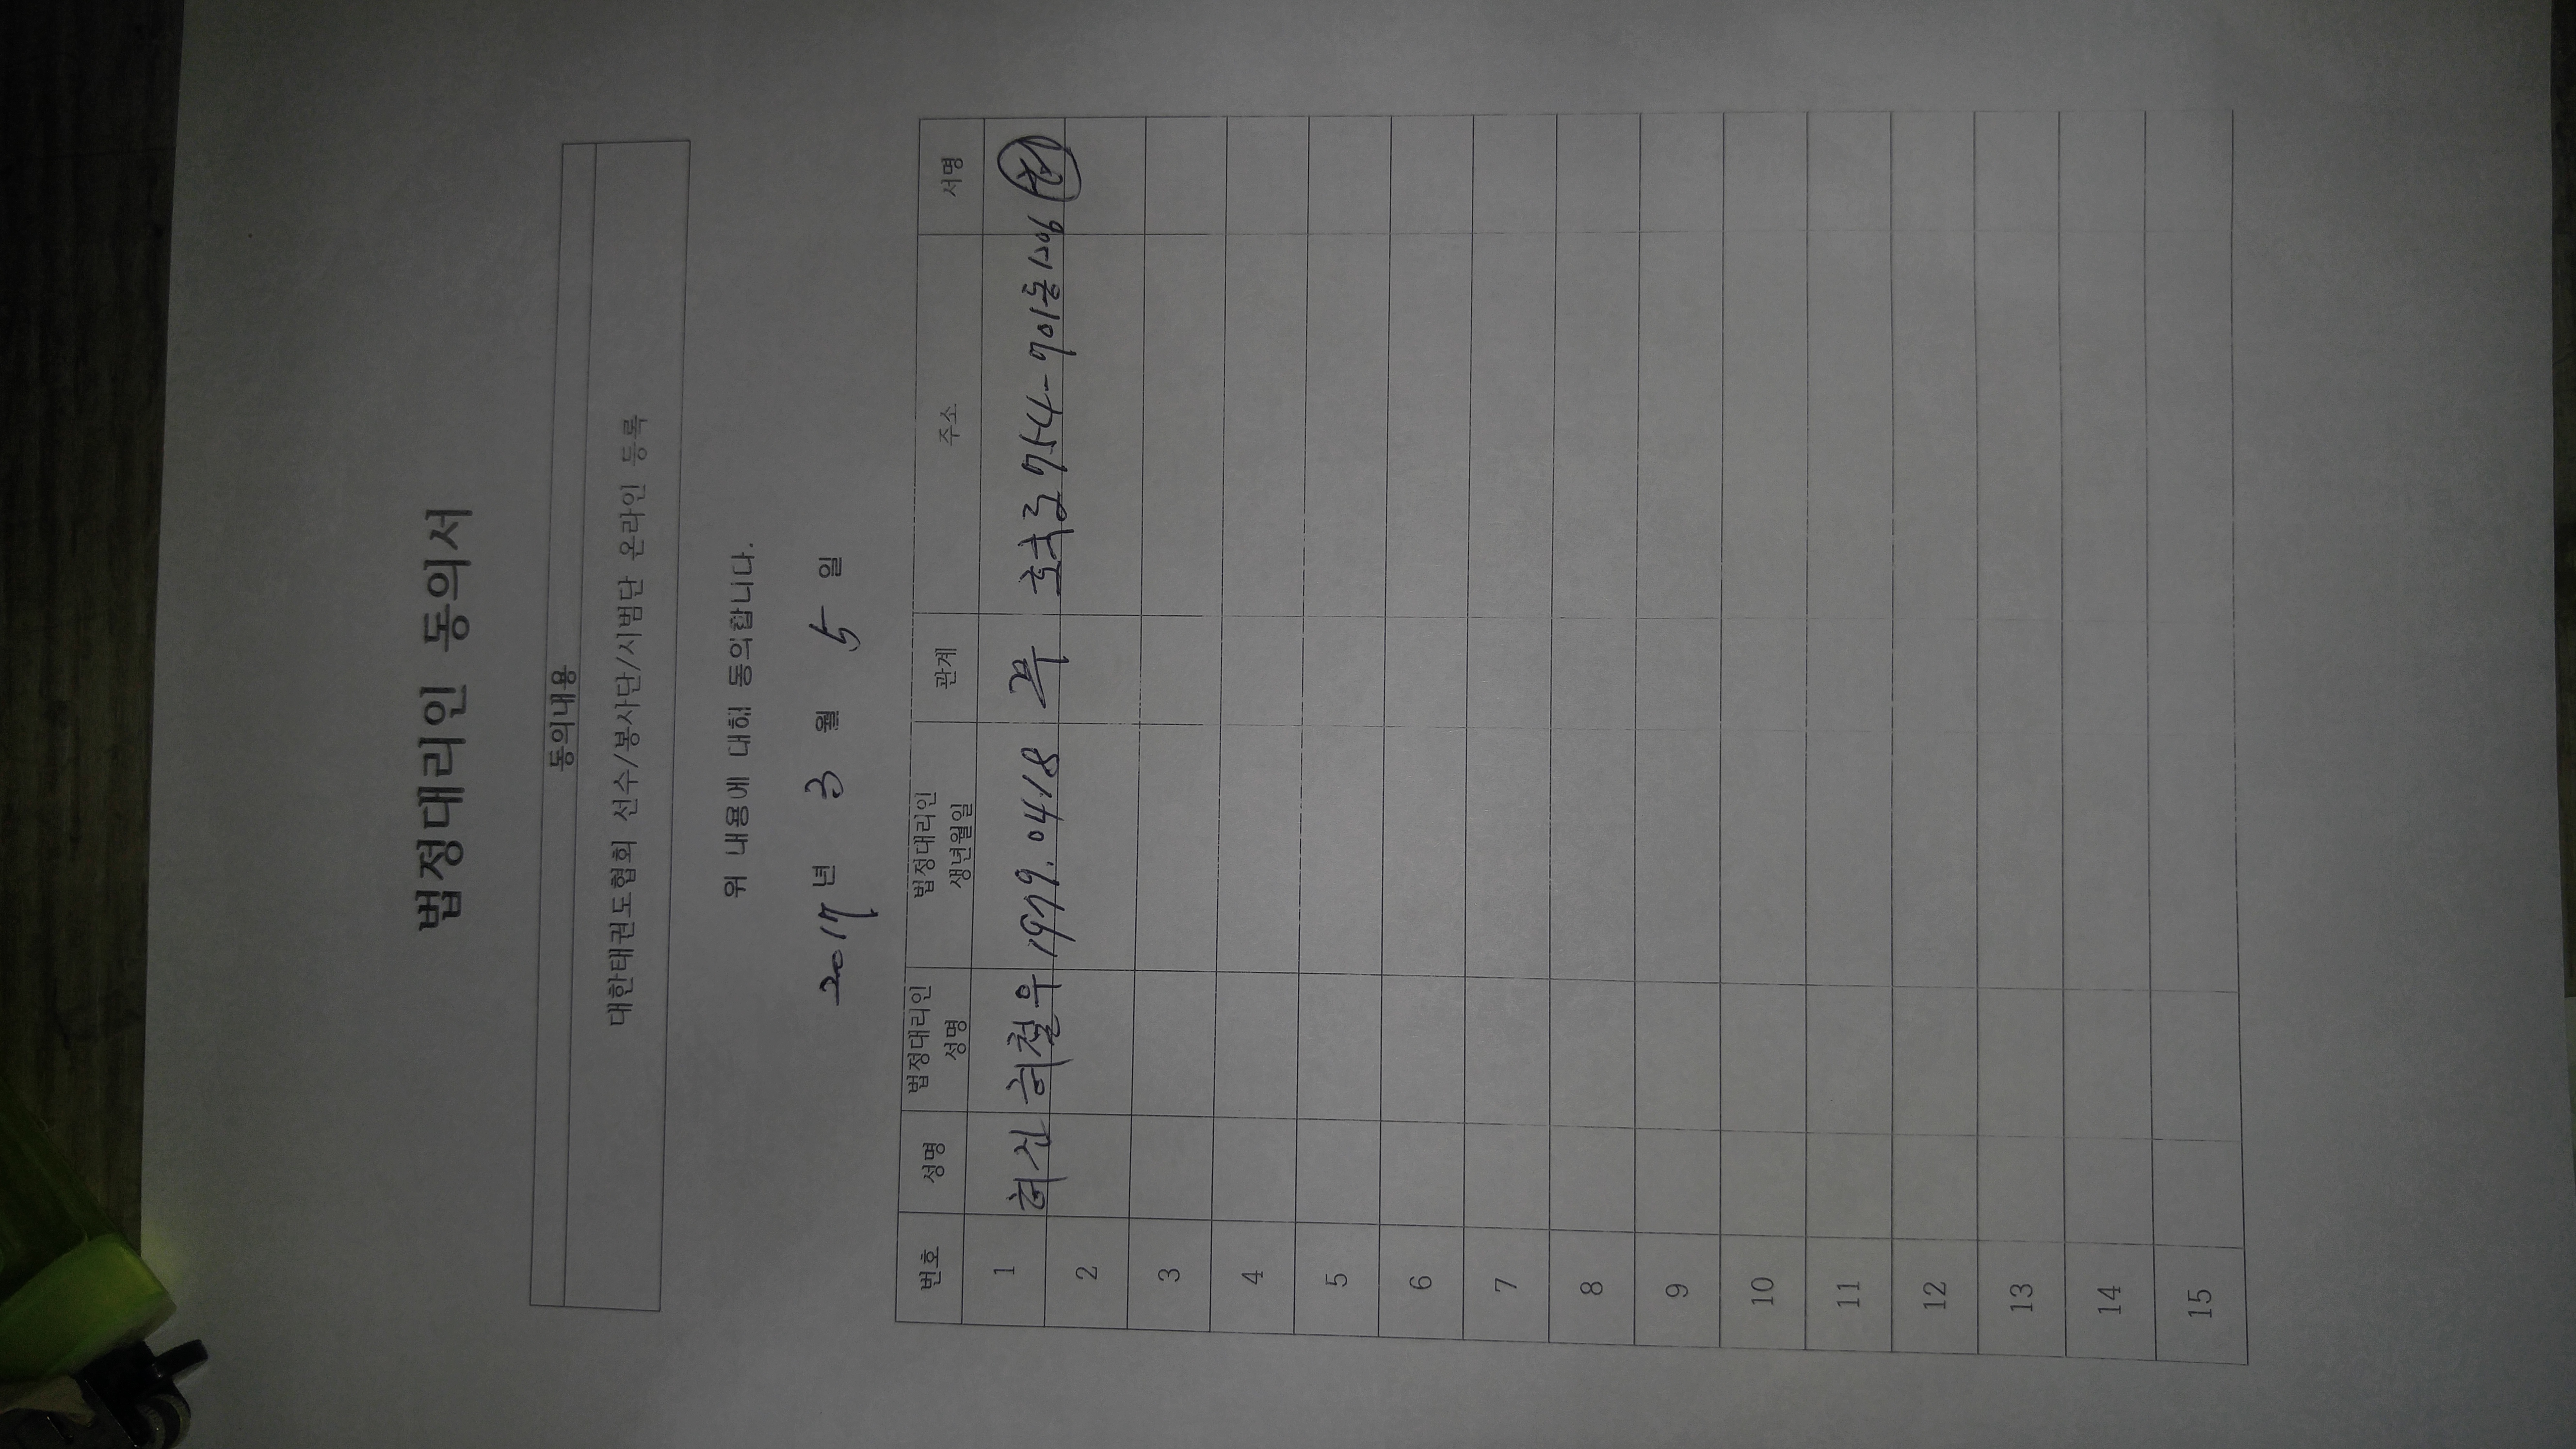 법정대리인 동의서
동의내용
대한태권도협회 선수/봉사단/시범단 온라인 등록
위 내용에 대해 동의합니다.
2017년 3월 5일
번호 성명 법정대리인 성명 법정대리인 생년월일 관계 주소 서명
1 허진 허철우 1979.04.18 부 호국로754-701동1206
2
3
4
5
6
7
8
9
10
11
12
13
14
15